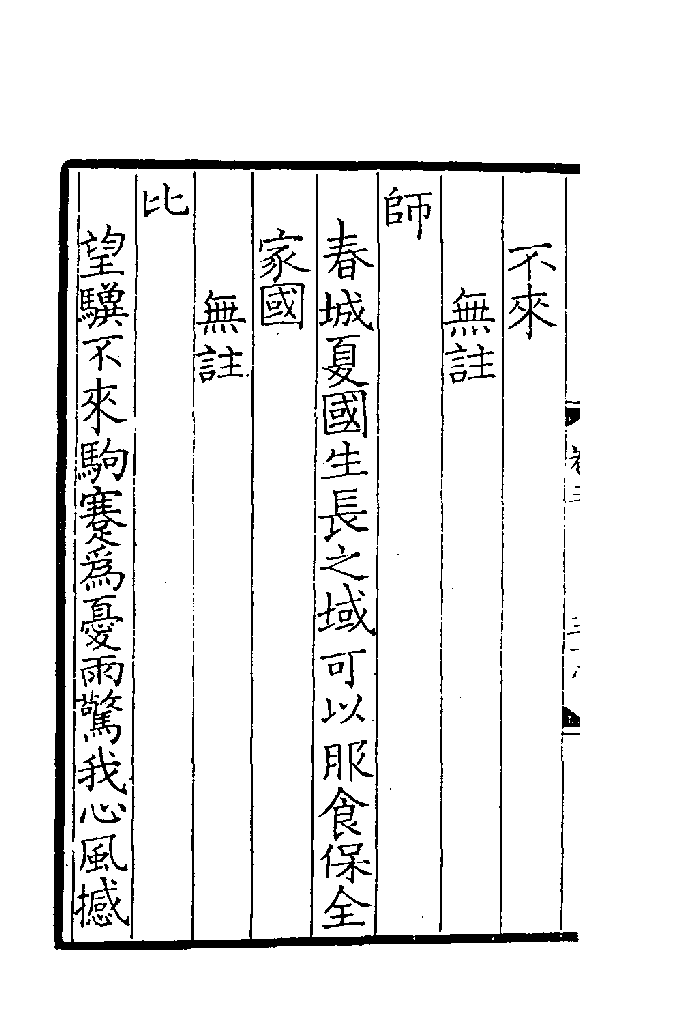 不來
無註
師
春城夏國生長之域可以服食保全
家國
無註
比
望騏不來駒蹇為憂雨驚我心風撼